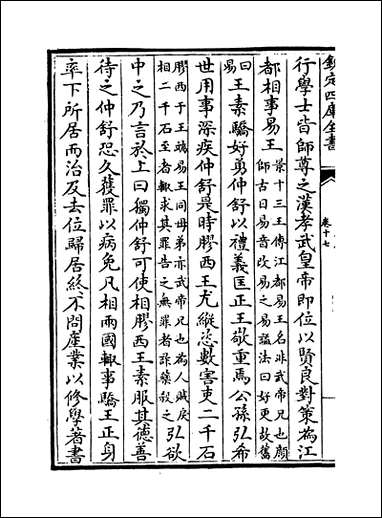 欽定四庫全書
卷十七
行學士皆師尊之漢孝武皇帝即位以賢良對策為江
都相事易王
景十三王傳江都易王名非武帝兄也顔
師古曰易音改易之易諡法曰好更故舊
曰易
王素驕好勇仲舒以禮義匡正王敬重焉公孫弘希
世用事深疾仲舒是時膠西王尤縱恣數害吏二千石
膠西于王端易王同母弟亦武帝兄也為人賊戾
相二千石至者輒求其罪告之無罪者詐藥殺之
弘欲
中之乃言於上曰獨仲舒可使相膠西王素服其德善
待之仲舒恐久獲罪以病免凡相兩國輒事驕王正身
率下所居而治及去位歸居終不問産業以修學著書